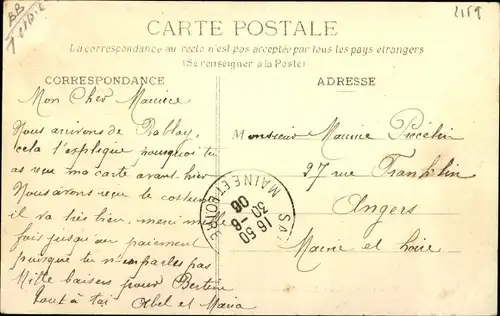 2159
CARTE POSTALE
La correspondance au recto n'est pas acceptée par tous les pays étrangers
(Se renseigner à la Poste)
CORRESPONDANCE
ADRESSE
Mon Cher Maurice
Nous arrivons de Rablay,
cela t'explique pourquoi tu
as reçu ma carte avant hier
Nous avons reçu le costume
il va très bien, merci mille
fois jusqu'au paiement
puisque tu n'en parles pas
Mille baisers pour Bertine
tout à toi Abel et Maria
Monsieur Maurice
27 rue Franklin
Angers
Maine et Loire
MAINE ET LOIRE
16 50
30 -8
06